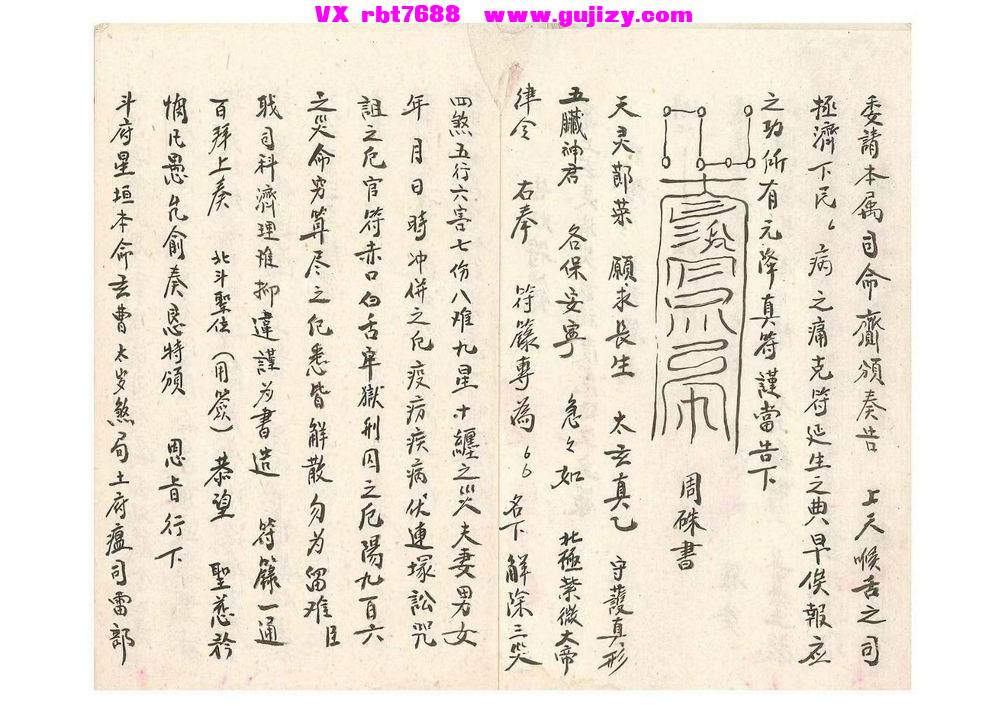 VX rbt7688 www.gujizy.com
委請本属司命齎頒奏告 上天喉舌之司
拯濟下民〻病之痛克符延生之典早俟報应
之功所有元降真符謹當告下
周硃書
天灵節荣 願求長生 太玄真乙 守護真形
五臟神君 各保安寧 急々如 北極紫微大帝
律令 右奉 符籙專為 名下解除三災
四煞五行六害七份八难九星十纏之災夫妻男女
年月日時冲併之厄疫疠疾病伏連塚訟咒
詛之厄官符赤口白舌牢獄刑囚之厄陽九百六
之災命穷算尽之厄悉皆解散勿为留难臣
戝司科濟理难抑違謹为書造 符籙一通
百拜上奏 北斗聖位(用簽)恭望 聖慈矜
憫凡愚允俞奏恳特頒 恩旨行下
斗府星垣本命玄曹太岁煞局土府瘟司雷部